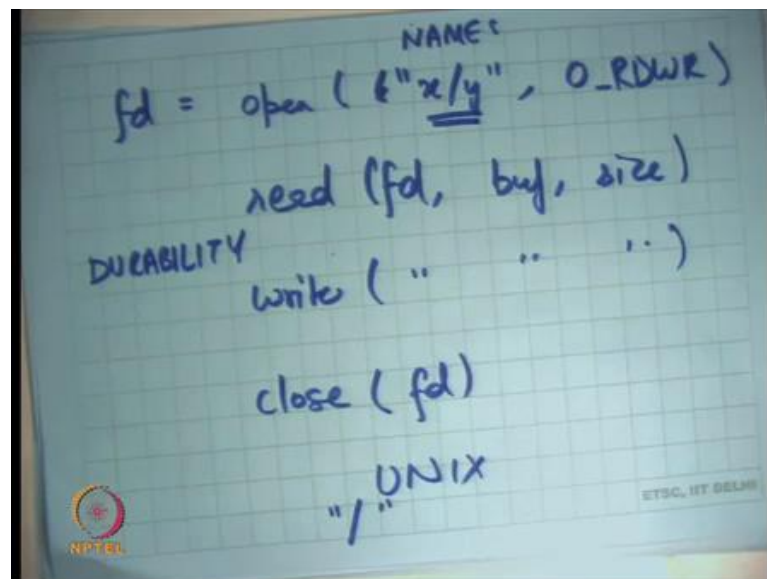 NAME:
fd = open ( "x/y", O_RDWR )
read (fd, buf, size)
DURABILITY
write ( " " " )
close (fd)
UNIX
"/"
ETSC, IIT DELHI
NPTEL